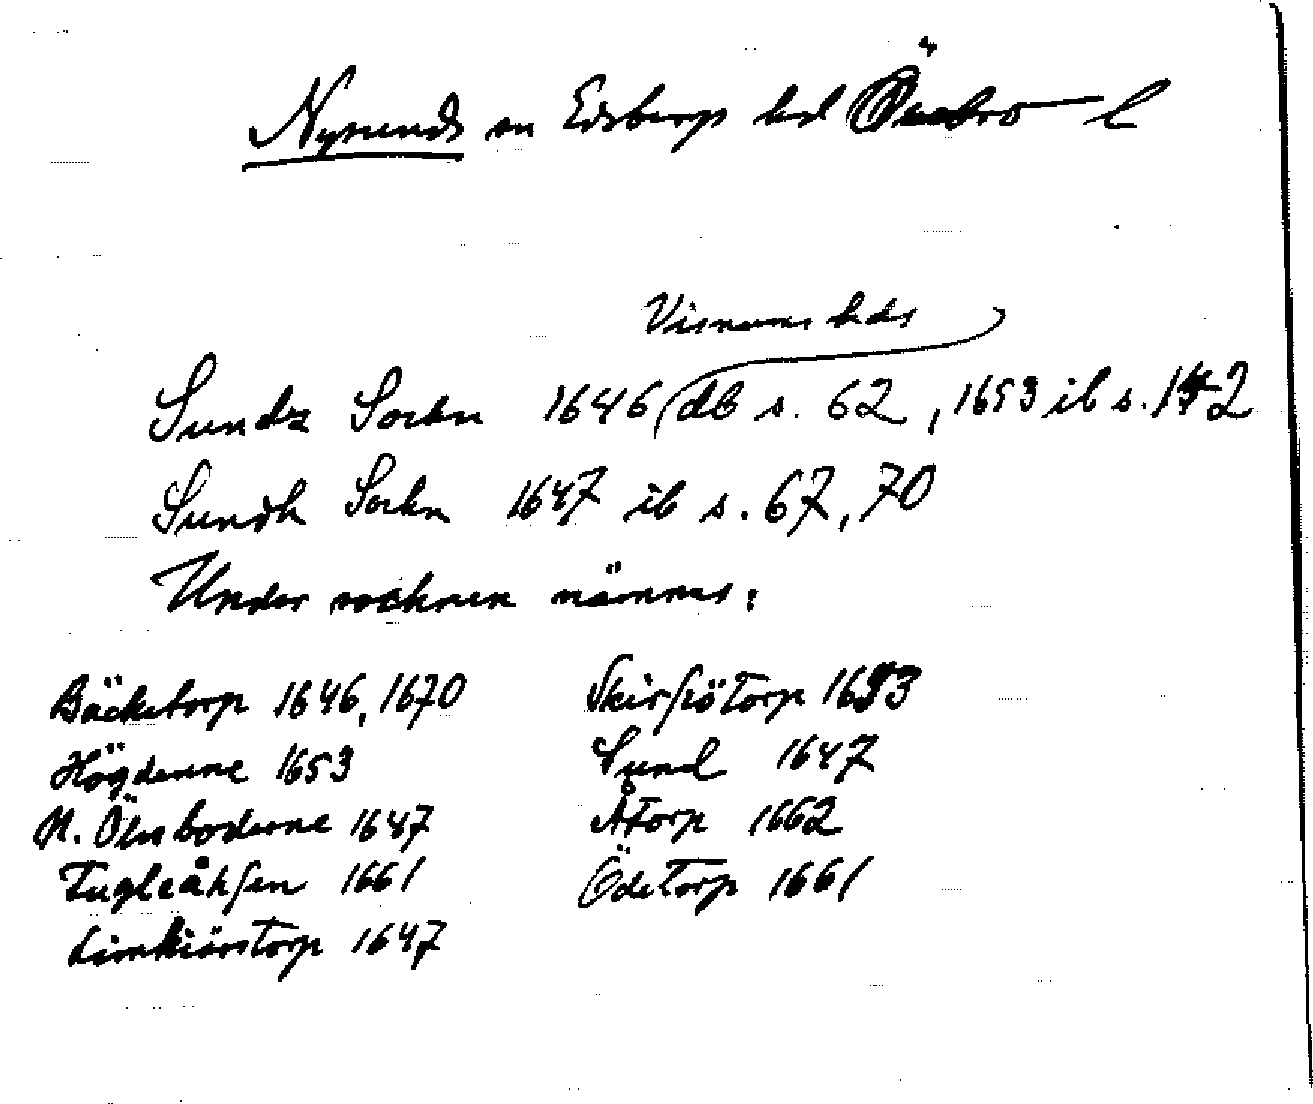 Nysunds sn Edsbergs hd Örebro l
Visnums hds
Sundz Sockn 1646 (db s. 62, 1653 ib s. 142
Sundh Sockn 1647 ib s. 67, 70
Under socknen nämnes:
Bäcketorp 1646, 1670
Högdenne 1653
N. Ölsboderne 1647
Fugleåhsen 1661
Limkiärstorp 1647
Skirsiötorp 1653
Sund 1647
Åtorp 1662
Ödetorp 1661